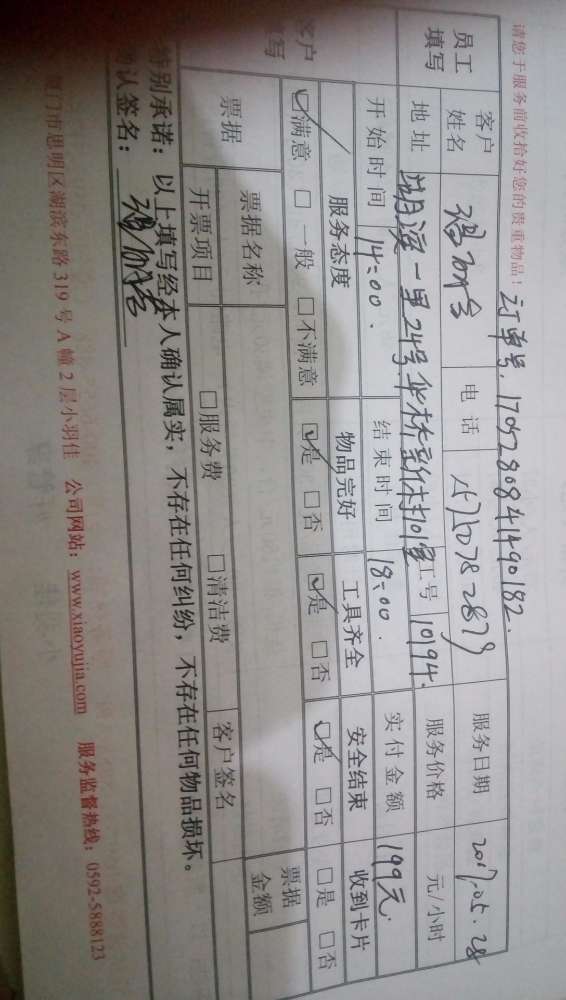 请您于服务前收拾好您的贵重物品！ 订单号. 1705280841490182.
员工填写 客户姓名 电话 服务日期 2017.05.28
地址 湖滨一里24号华侨新村 工号 10194. 服务价格 元/小时
开始时间 14:00. 结束时间 18:00. 实付金额 199元
客户填写 服务态度 物品完好 工具齐全 安全结束 收到卡片
☑满意 □一般 □不满意 ☑是 □否 ☑是 □否 ☑是 □否 □是 □否
票据 票据名称 票据金额
开票项目 □服务费 □清洁费 客户签名
特别承诺：以上填写经本人确认属实，不存在任何纠纷，不存在任何物品损坏。
确认签名：
厦门市思明区湖滨东路 319 号 A 幢 2 层小羽佳 公司网站：www.xiaoyujia.com 服务监督热线：0592-5888123